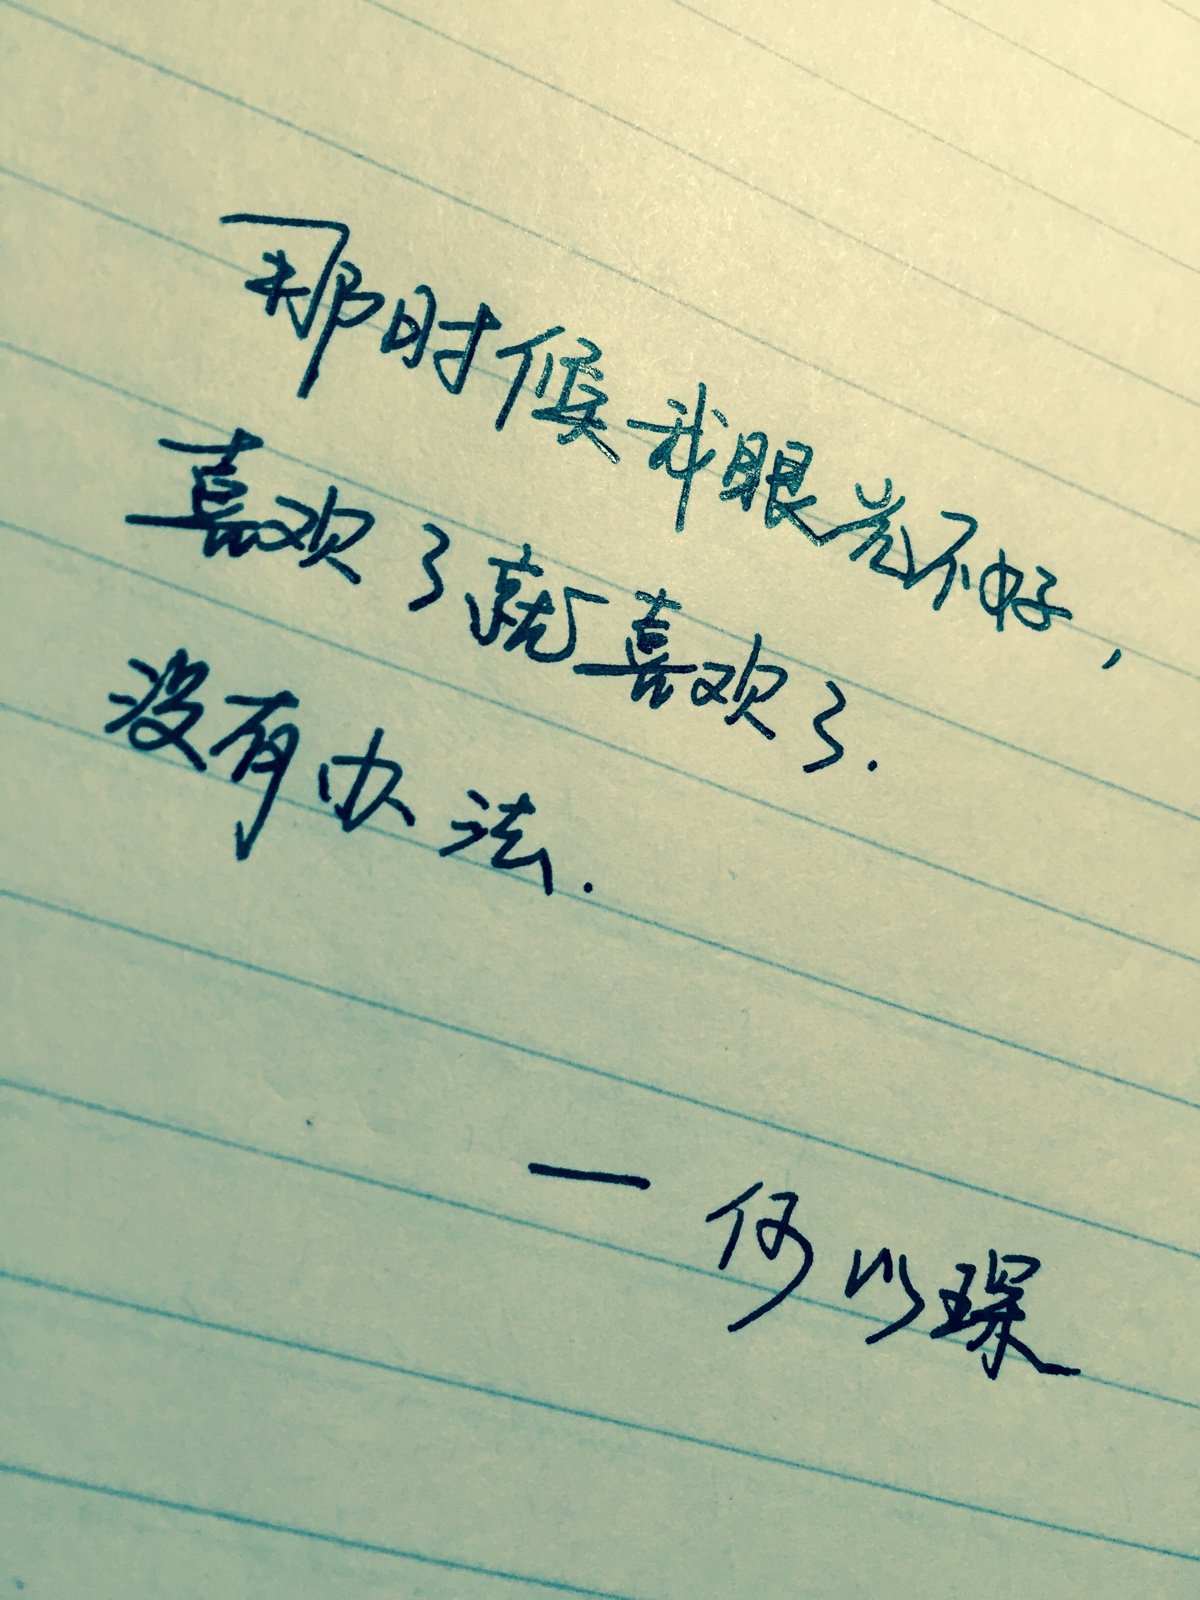 那时候我眼光不好,
喜欢了就喜欢了.
没有办法.
— 何以琛